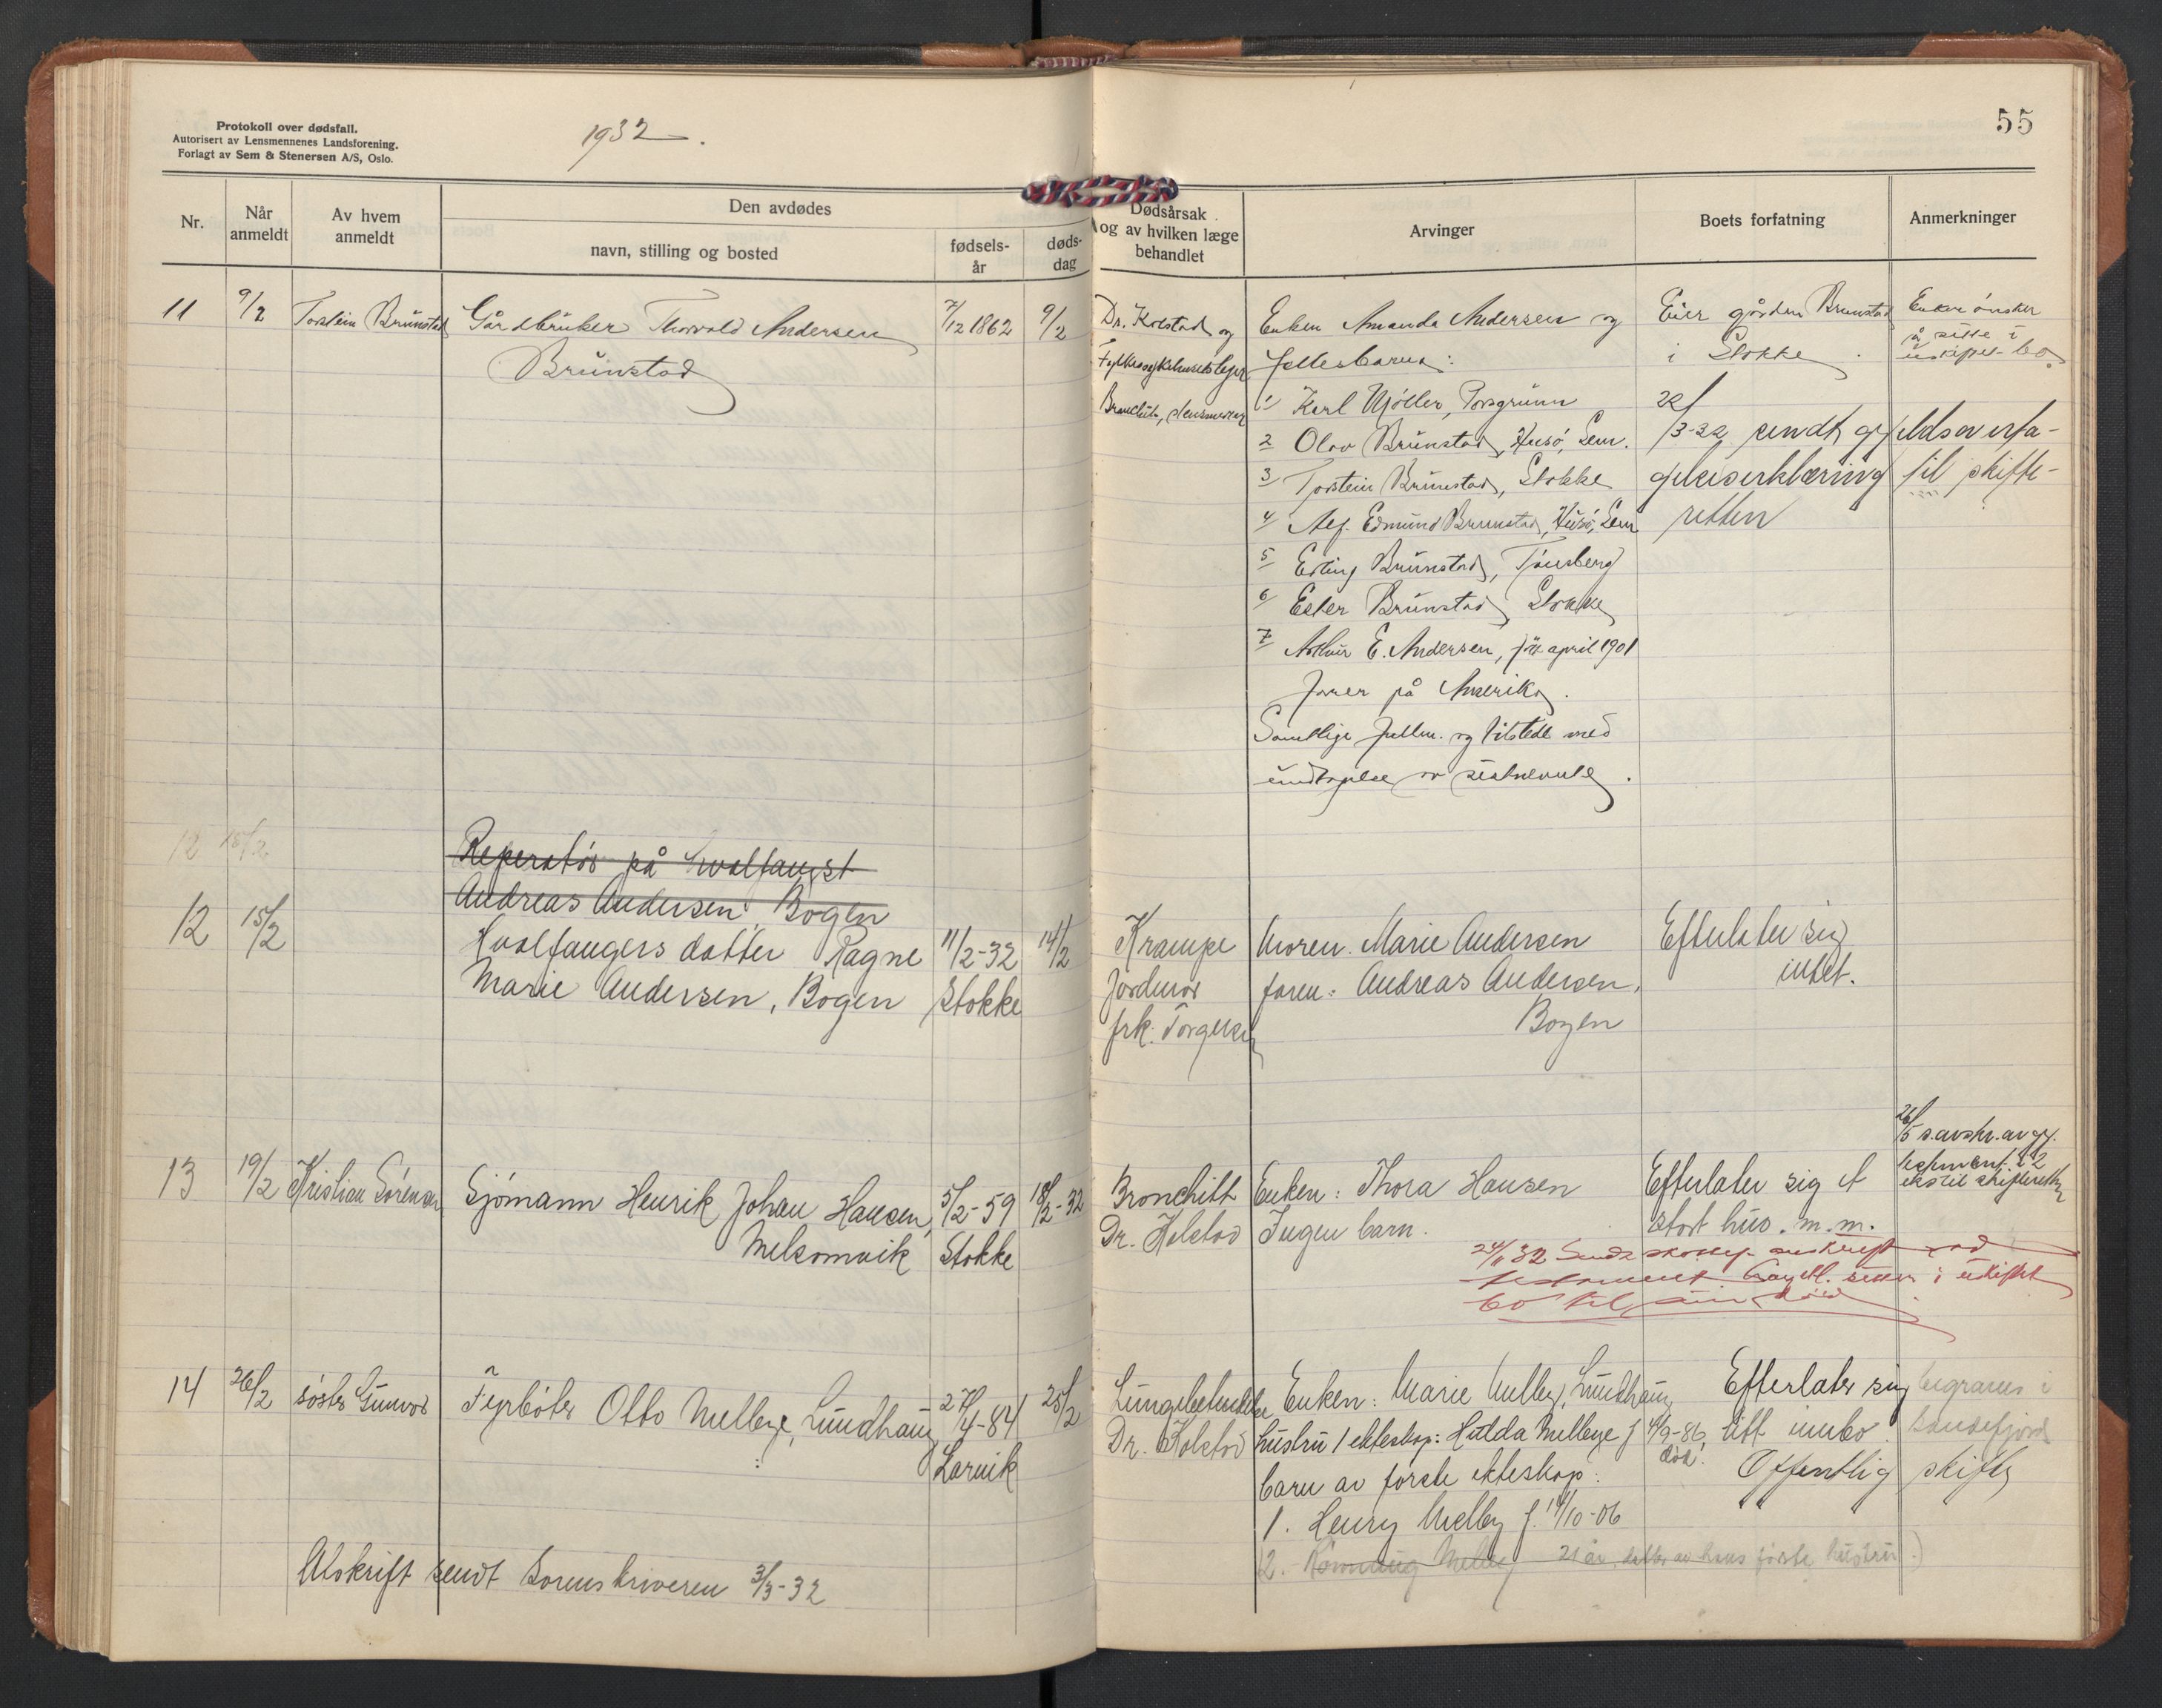 Protokoll over dødsfall.
Autorisert av Lensmennenes Landsforening.
Forlagt av Sem & Stenersen A/S, Oslo.
1932
55
Nr.
Når anmeldt
Av hvem anmeldt
Den avdødes
navn, stilling og bosted
fødsels-år
døds-dag
Dødsårsak og av hvilken læge behandlet
Arvinger
Boets forfatning
Anmerkninger
11 9/2 Torstein Brunstad Gårdbruker Thorvald Andersen 7/12 1862 9/2
Brunstad
Dr. Kolstad og
Fylkessykehusets leger
Enken Amanda Andersen og
fellesbarn:
1 Karl Mjöller, Porsgrunn
2 Olav Brunstad, Husö, Sem.
3 Torstein Brunstad, Stokke
4 Alf Edmund Brunstad, Husö, Sem
5 Erling Brunstad, Tönsberg
6 Ester Brunstad, Stokke
7 Arthur E. Andersen, april 1901
farer på Amerika.
Samtlige fullm. og tilstede med
undtagelse av sistnevnte.
Eier gården Brunstad
i Stokke.
Enken önsker
å sitte i
uskiftet bo.
sendt gjeldsoverta-
gelseserklæring til skifte-
retten
12 15/2
Reperatör på hvalfangst
Andreas Andersen, Bogen
12 15/2 Hvalfangers datter Ragne 11/2-32 14/2
Marie Andersen, Bogen Stokke
Krampe
Jordmor
frk. Torgersen
Moren. Marie Andersen
faren: Andreas Andersen,
Bogen
Efterlater sig
intet.
13 19/2 Kristian Sörensen Sjömann Henrik Johan Hansen, 5/2-59 18/2-32
Melsomvik Stokke
Bronchitt
Dr. Kolstad
Enken: Thora Hansen
Ingen barn.
Efterlater sig et
stort hus. m.m.
26/5 s. avskr. av gj.
testment i 2
eks til skifteretten
24/11 32 Sendt avskrift
testament. sitter i uskiftet
bo til sin död
14 26/2 söster Gunvor Fyrböter Otto Melbye, Lundhaug 27/4-84 25/2
Larvik
Lungebetendelse
Dr. Kolstad
Enken: Marie Melby, Lundhaug
hustru 1 ekteskap: Hilda Melbye f 4/9-86,
död.
barn av förste ekteskap:
1. Henry Melby f. 14/10-06
2. Melby 21 år, datter av hans förste hustru.)
Efterlater sig
litt innbo.
Offentlig skifte
begraves i
Sandefjord
Avskrift sendt Sorenskriveren 3/3-32